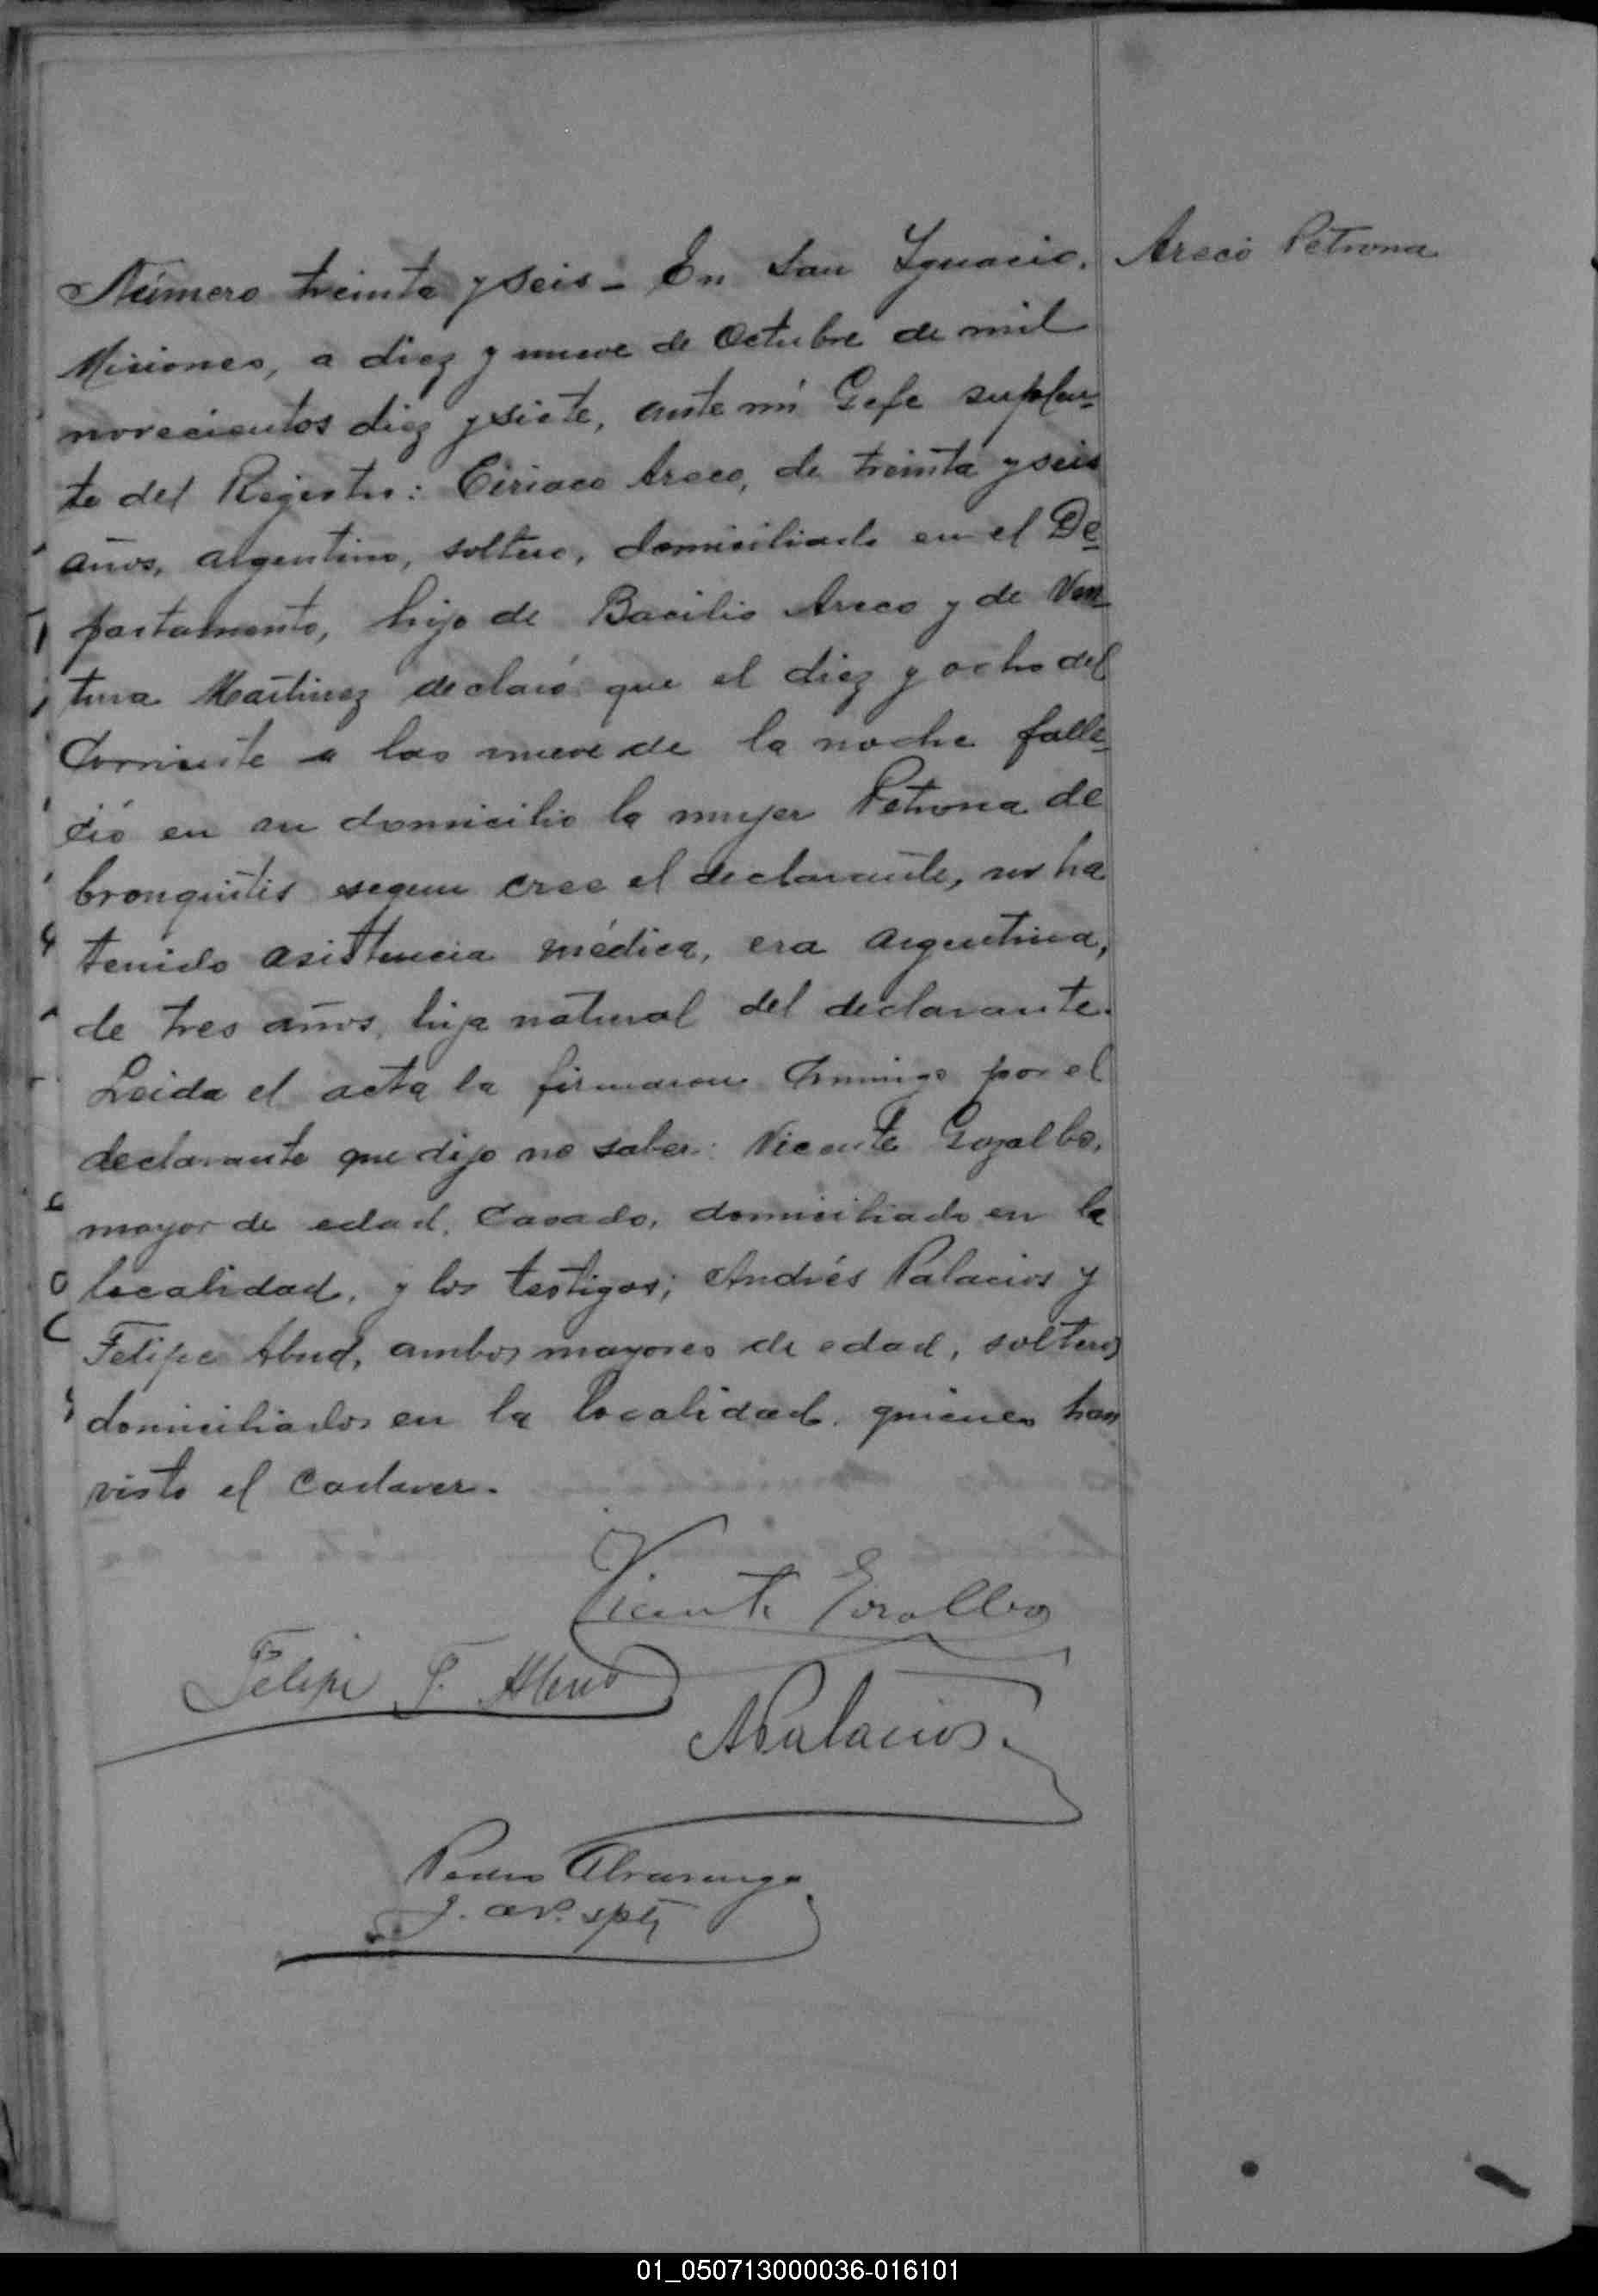 Areco Petrona
Número treinta y seis - En San Ygnacio,
Misiones, a diez y nueve de Octubre de mil
novecientos diez y siete, ante mi Gefe suplen-
te del Registro: Ciriaco Areco, de treinta y seis
años, argentino, soltero, domiciliado en el De-
partamento, hijo de Bacilio Areco y de Ven-
tura Martinez declaró que el diez y ocho del
Corriente a las nueve de la noche falle-
ció en su domicilio la mujer Petrona de
bronquitis segun cree el declarante, no ha
tenido asistencia médica, era argentina,
de tres años, hija natural del declarante.
Leida el acta la firmaron Conmigo por el
declarante que dijo no saber: Vicente Gozalbo,
mayor de edad, Casado, domiciliado en la
localidad, y los testigos; Andrés Palacios y
Felipe Abud, ambos mayores de edad, solteros
domiciliados en la localidad, quienes han
visto el Cadaver.
Vicente Gozalbo
Felipe F. Abud
APalacios.
Pedro
01_050713000036-016101